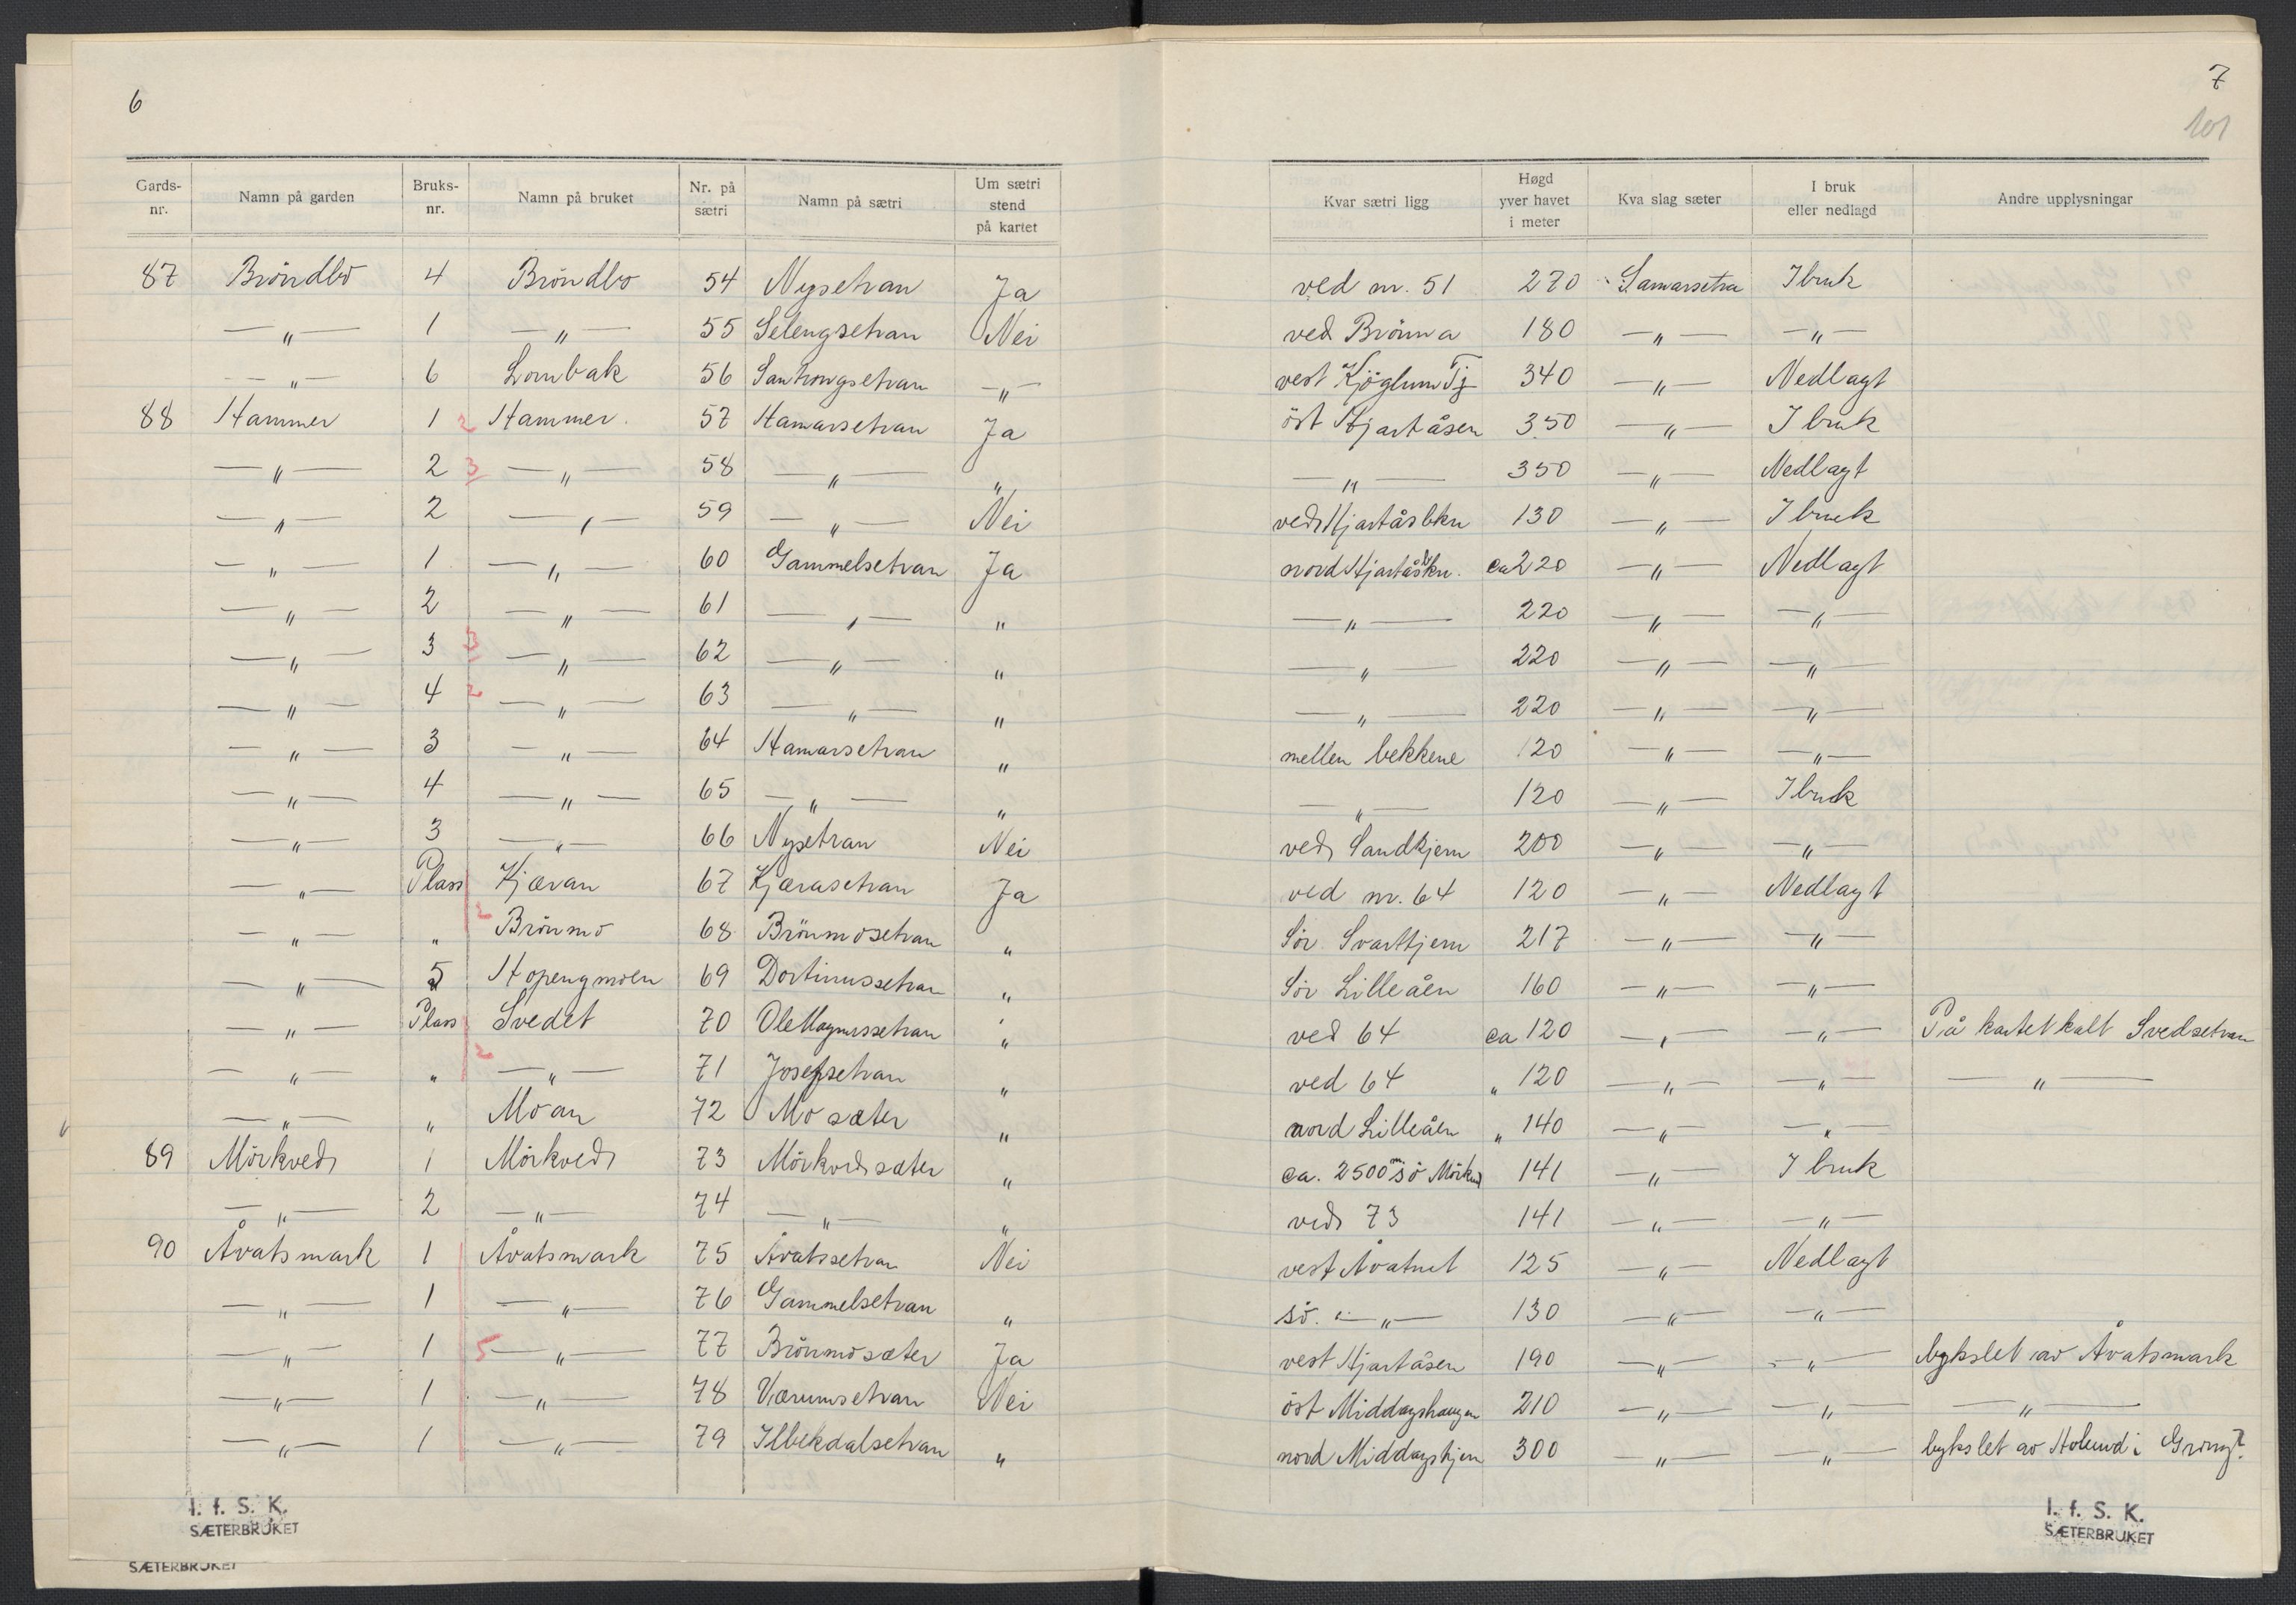 6
Gards-nr. Namn på garden Bruks-nr. Namn på bruket Nr. på sætri Namn på sætri Um sætri stend på kartet
87 Bröndbo 4 Bröndbo 54 Nysetran Ja
—„— 1 —„— 55 Selengsetran Nei
—„— 6 Lombak 56 —„—
88 Hammer 1 2 Hammer. 57 Hamarsetran Ja
—„— 2 3 —„— 58 —„— „
—„— 2 —„— 59 —„— Nei
—„— 1 —„— 60 Gammelsetran Ja
—„— 2 —„— 61 —„— „
—„— 3 3 —„— 62 —„— „
—„— 4 2 —„— 63 —„— „
—„— 3 —„— 64 Hamarsetran „
—„— 4 —„— 65 —„— „
—„— 3 —„— 66 Nysetran Nei
—„— Plass Kjæran 67 Kjærasetran Ja
—„— „ 2 Brönmo 68 Brönmosetran „
—„— 5 Hopengmoen 69 Dortinussetran „
—„— Plass Svedet 70 Ole Magnussetran „
—„— „ 2 —„— 71 Josefsetran „
—„— „ Moan 72 Mosæter „
89 Mörkved 1 Mörkved 73 Mörkvedsæter „
—„— 2 —„— 74 —„— „
90 Åvatsmark 1 Åvatsmark 75 Åvatssetran Nei
—„— 1 —„— 76 Gammelsetran „
—„— 1 5 —„— 77 Brönmosæter Ja
—„— 1 —„— 78 Værumsetran Nei
—„— 1 —„— 79 Ilbekdalsetran „
I. f. S. K.
SÆTERBRUKET
SÆTERBRUKET
7
101
Kvar sætri ligg Høgd yver havet i meter Kva slag sæter I bruk eller nedlagd Andre upplysningar
ved nr. 51 270 Samarsetra I bruk
ved Brönna 180 —„— —„—
vest Kjöglum Tj 340 —„— Nedlagt
öst Hjartåsen 350 —„— I bruk
—„— 350 —„— Nedlagt
ved Hjartåsbkn 130 —„— I bruk
nord Hjartåsbkn. ca 220 —„— Nedlagt
—„— 220 —„— —„—
—„— 220 —„— —„—
—„— 220 —„— —„—
mellen bekkene 120 —„— —„—
—„— 120 —„— I bruk
ved Sandkjern 200 —„— —„—
ved nr. 64 120 —„— Nedlagt
Sör. Svarttjern 217 —„— —„—
Sör Lilleåen 160 —„— —„—
ved 64 ca 120 —„— —„— På kartet kalt Svedsetran
ved 64 „ 120 —„— —„— —„—
nord Lilleåen „ 140 —„— —„—
ca. 2500 m sö Mörkved 141 —„— I bruk
ved 73 141 —„— —„—
vest Åvatnet 125 —„— Nedlagt
sö. —„— 130 —„— —„—
vest Hjartåsen 190 —„— —„— bykslet av Åvatsmark
öst Middagshaugen 210 —„— —„— —„—
nord Middagstjern 300 —„— —„— bykslet av i
I. f. S. K.
SÆTERBRUKET